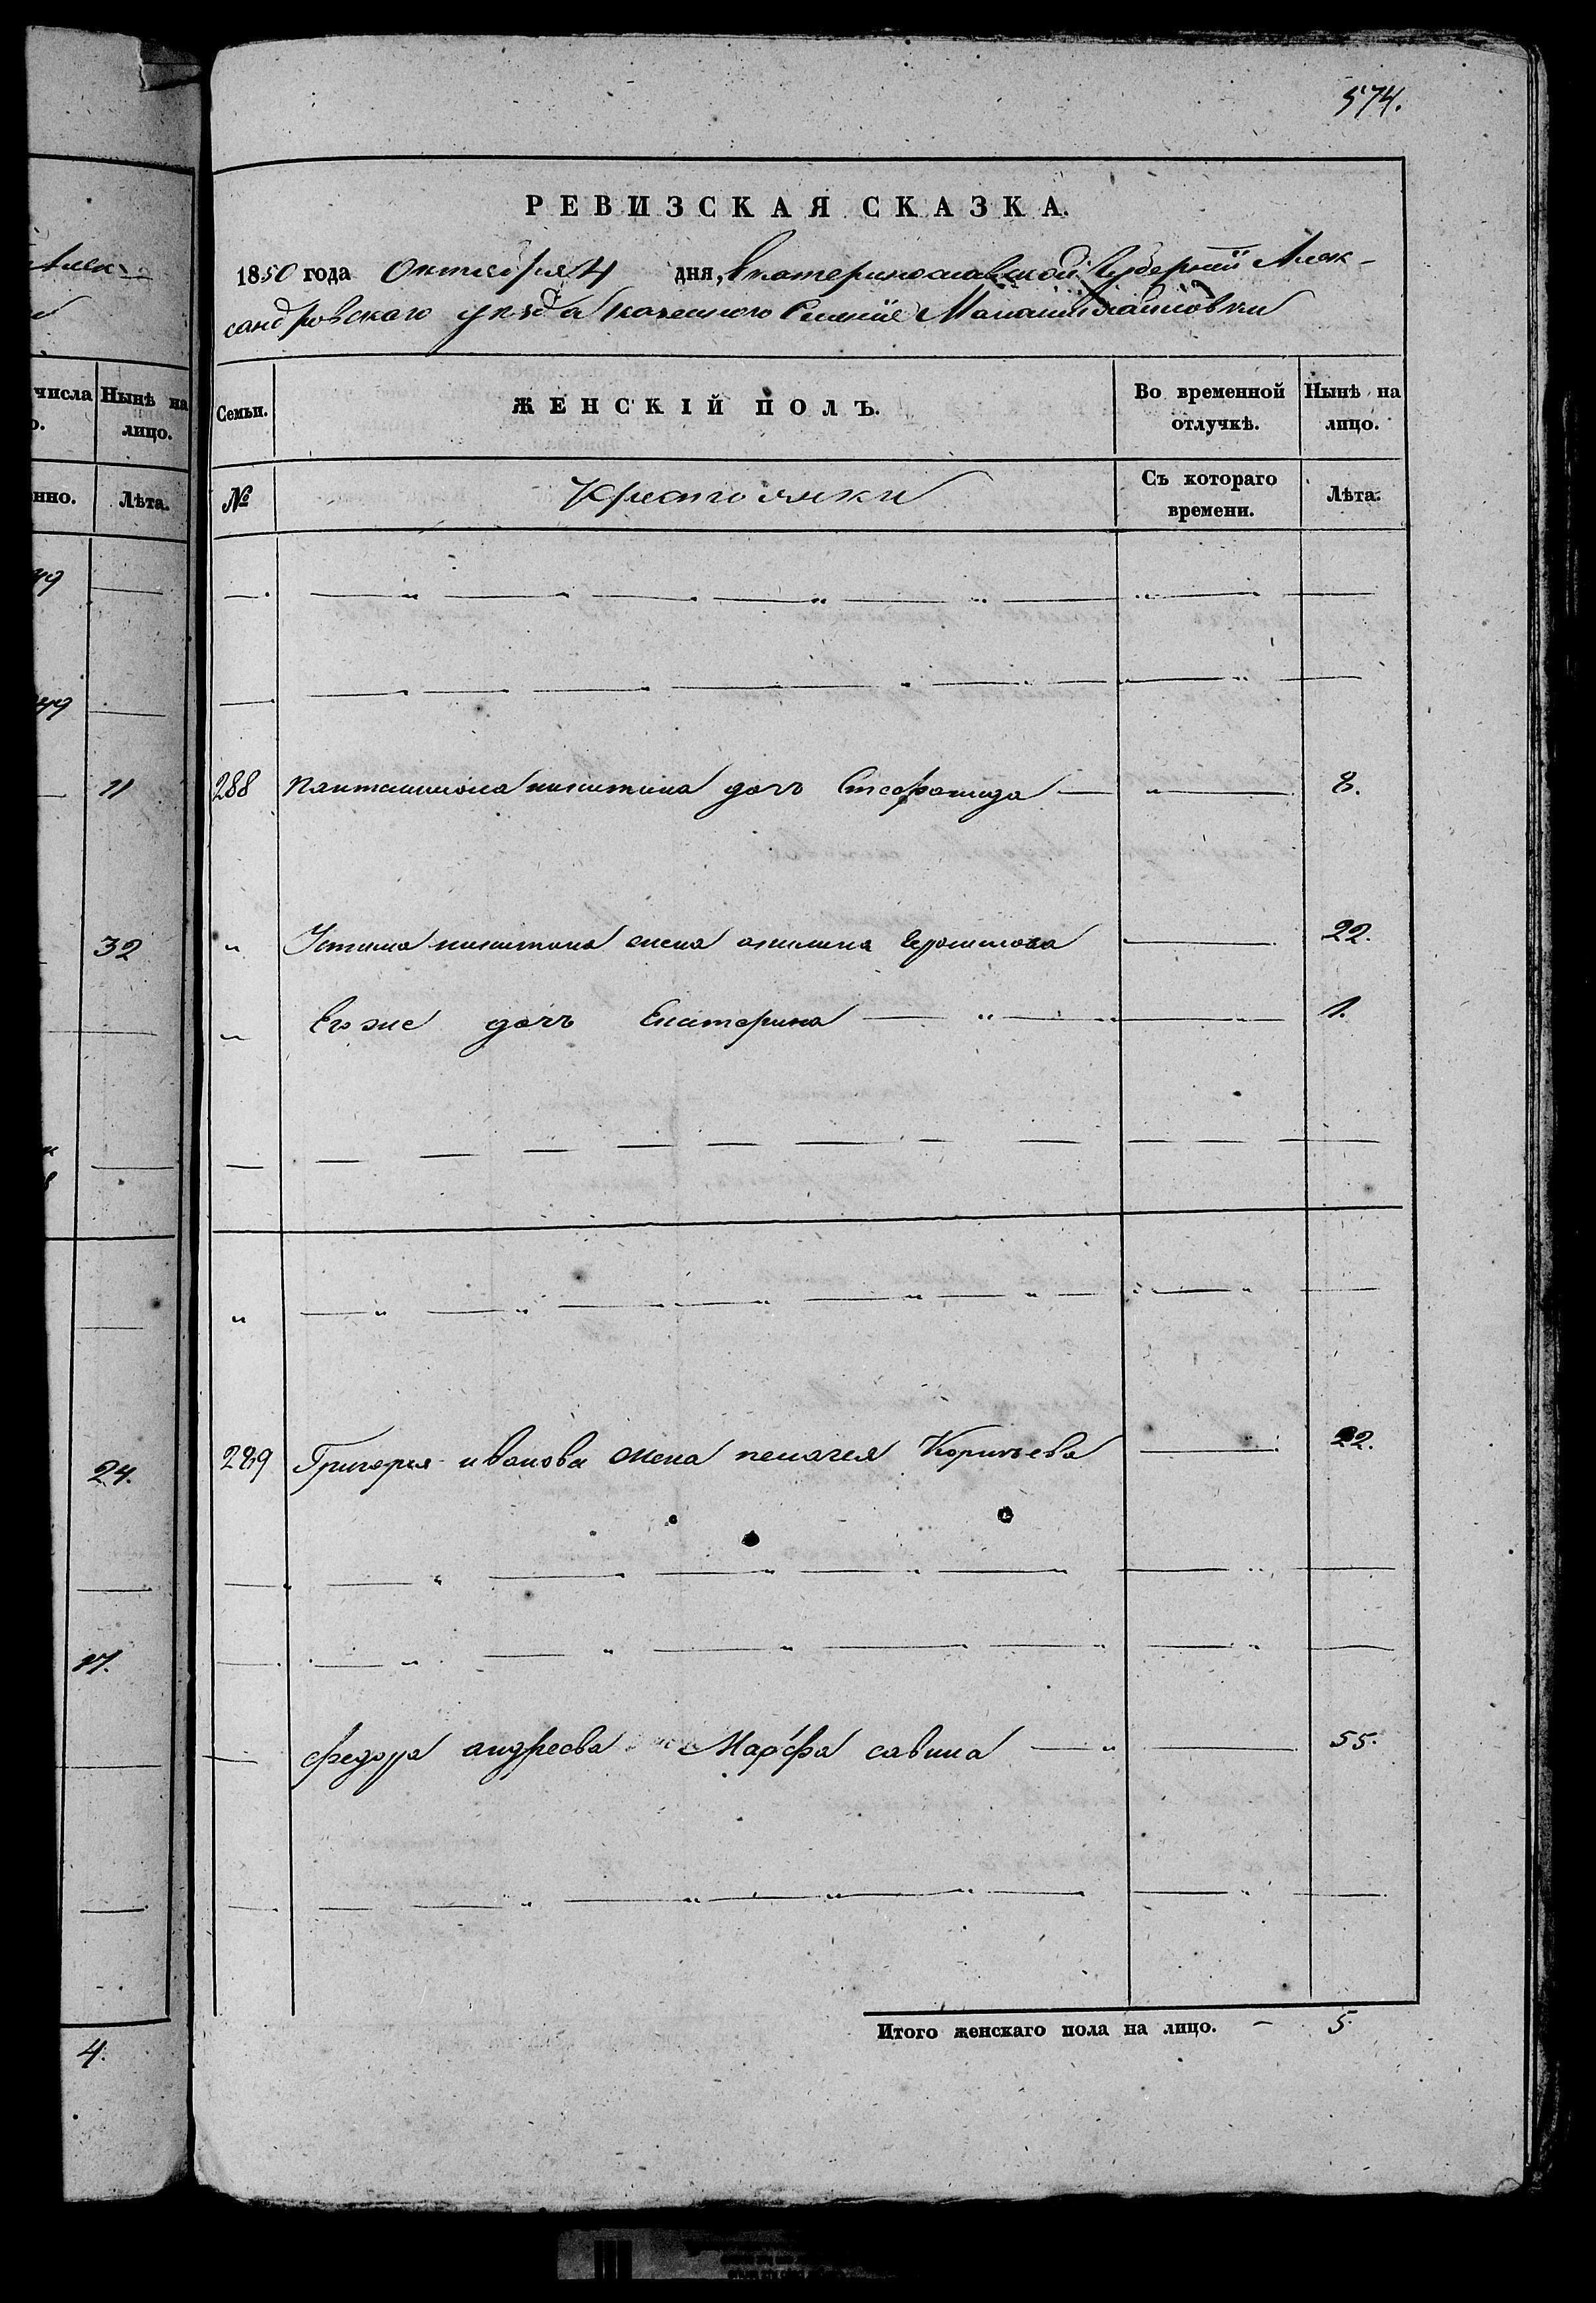 574.
РЕВИЗСКАЯ СКАЗКА.
1850 года Октября 4 дня, Екатеринославской Губерніи Алек-
сандровскаго уезда казенного Селенія
Семьи.
ЖЕНСКІЙ ПОЛЪ.
Во временной отлучкѣ.
Нынѣ на лицо.
№
Крестьянки
Съ котораго времени.
Лѣта.
288 Пантелимона никитина дочь Стефанида 8.
" Устина никитина жена акилина 22.
" Его же дочь Екатерина 1.
289 Григорія иванова жена пелагея 22.
федора андреева Марфа савина 55.
Итого женскаго пола на лицо. 5.
Алек-
числа
Нынѣ на
лицо.
нно.
Лѣта.
11
32
24.
17.
4.